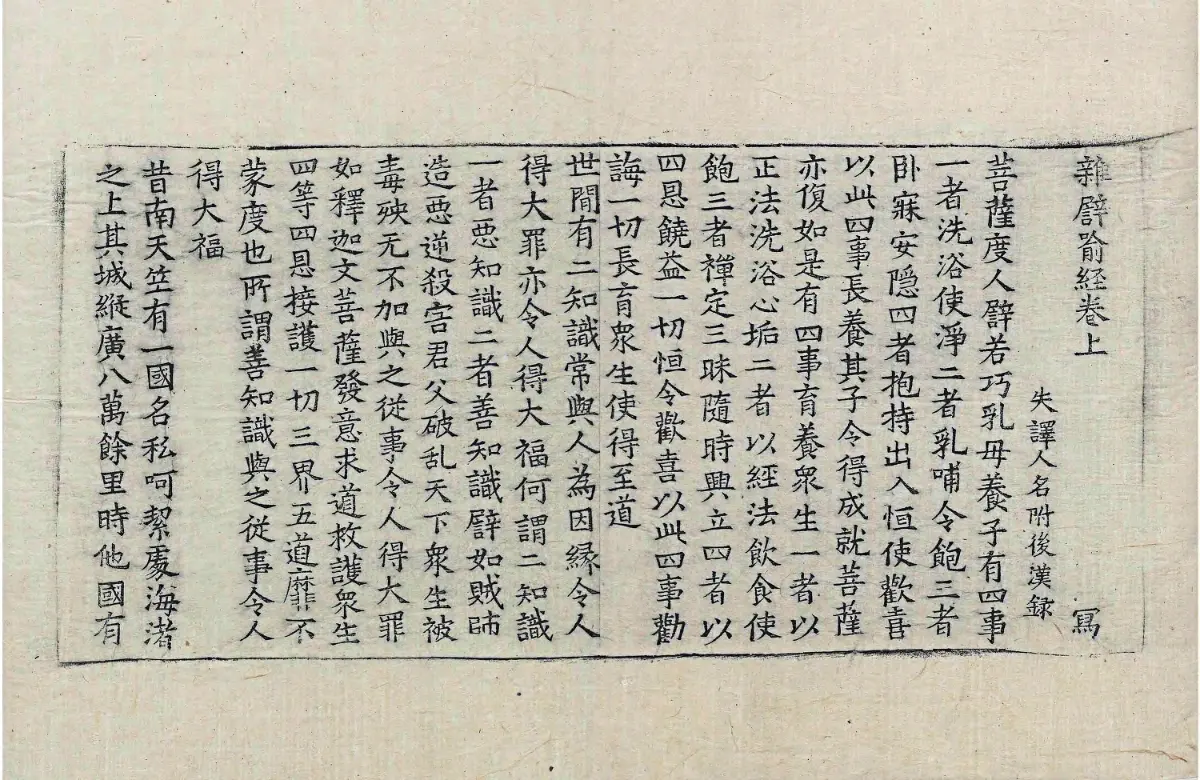 雜譬喻経卷上　寫
失譯人名附後漢録
菩薩度人譬若巧乳母養子有四事
一者洗浴使淨二者乳哺令飽三者
卧寐安隠四者抱持出入恒使歡喜
以此四事長養其子令得成就菩薩
亦復如是有四事育養衆生一者以
正法洗浴心垢二者以經法飲食使
飽三者禪定三昧隨時興立四者以
四恩饒益一切恒令歡喜以此四事勸
誨一切長育衆生使得至道
世間有二知識常與人為因緣令人
得大罪亦令人得大福何謂二知識
一者惡知識二者善知識譬如賊師
造惡逆殺害君父破乱天下衆生被
毒殃无不加與之従事令人得大罪
如釋迦文菩薩發意求道救護衆生
四等四恩接護一切三界五道靡不
蒙度也所謂善知識與之従事令人
得大福
昔南天竺有一國名私呵絜處海渚
之上其城縱廣八萬餘里時他國有